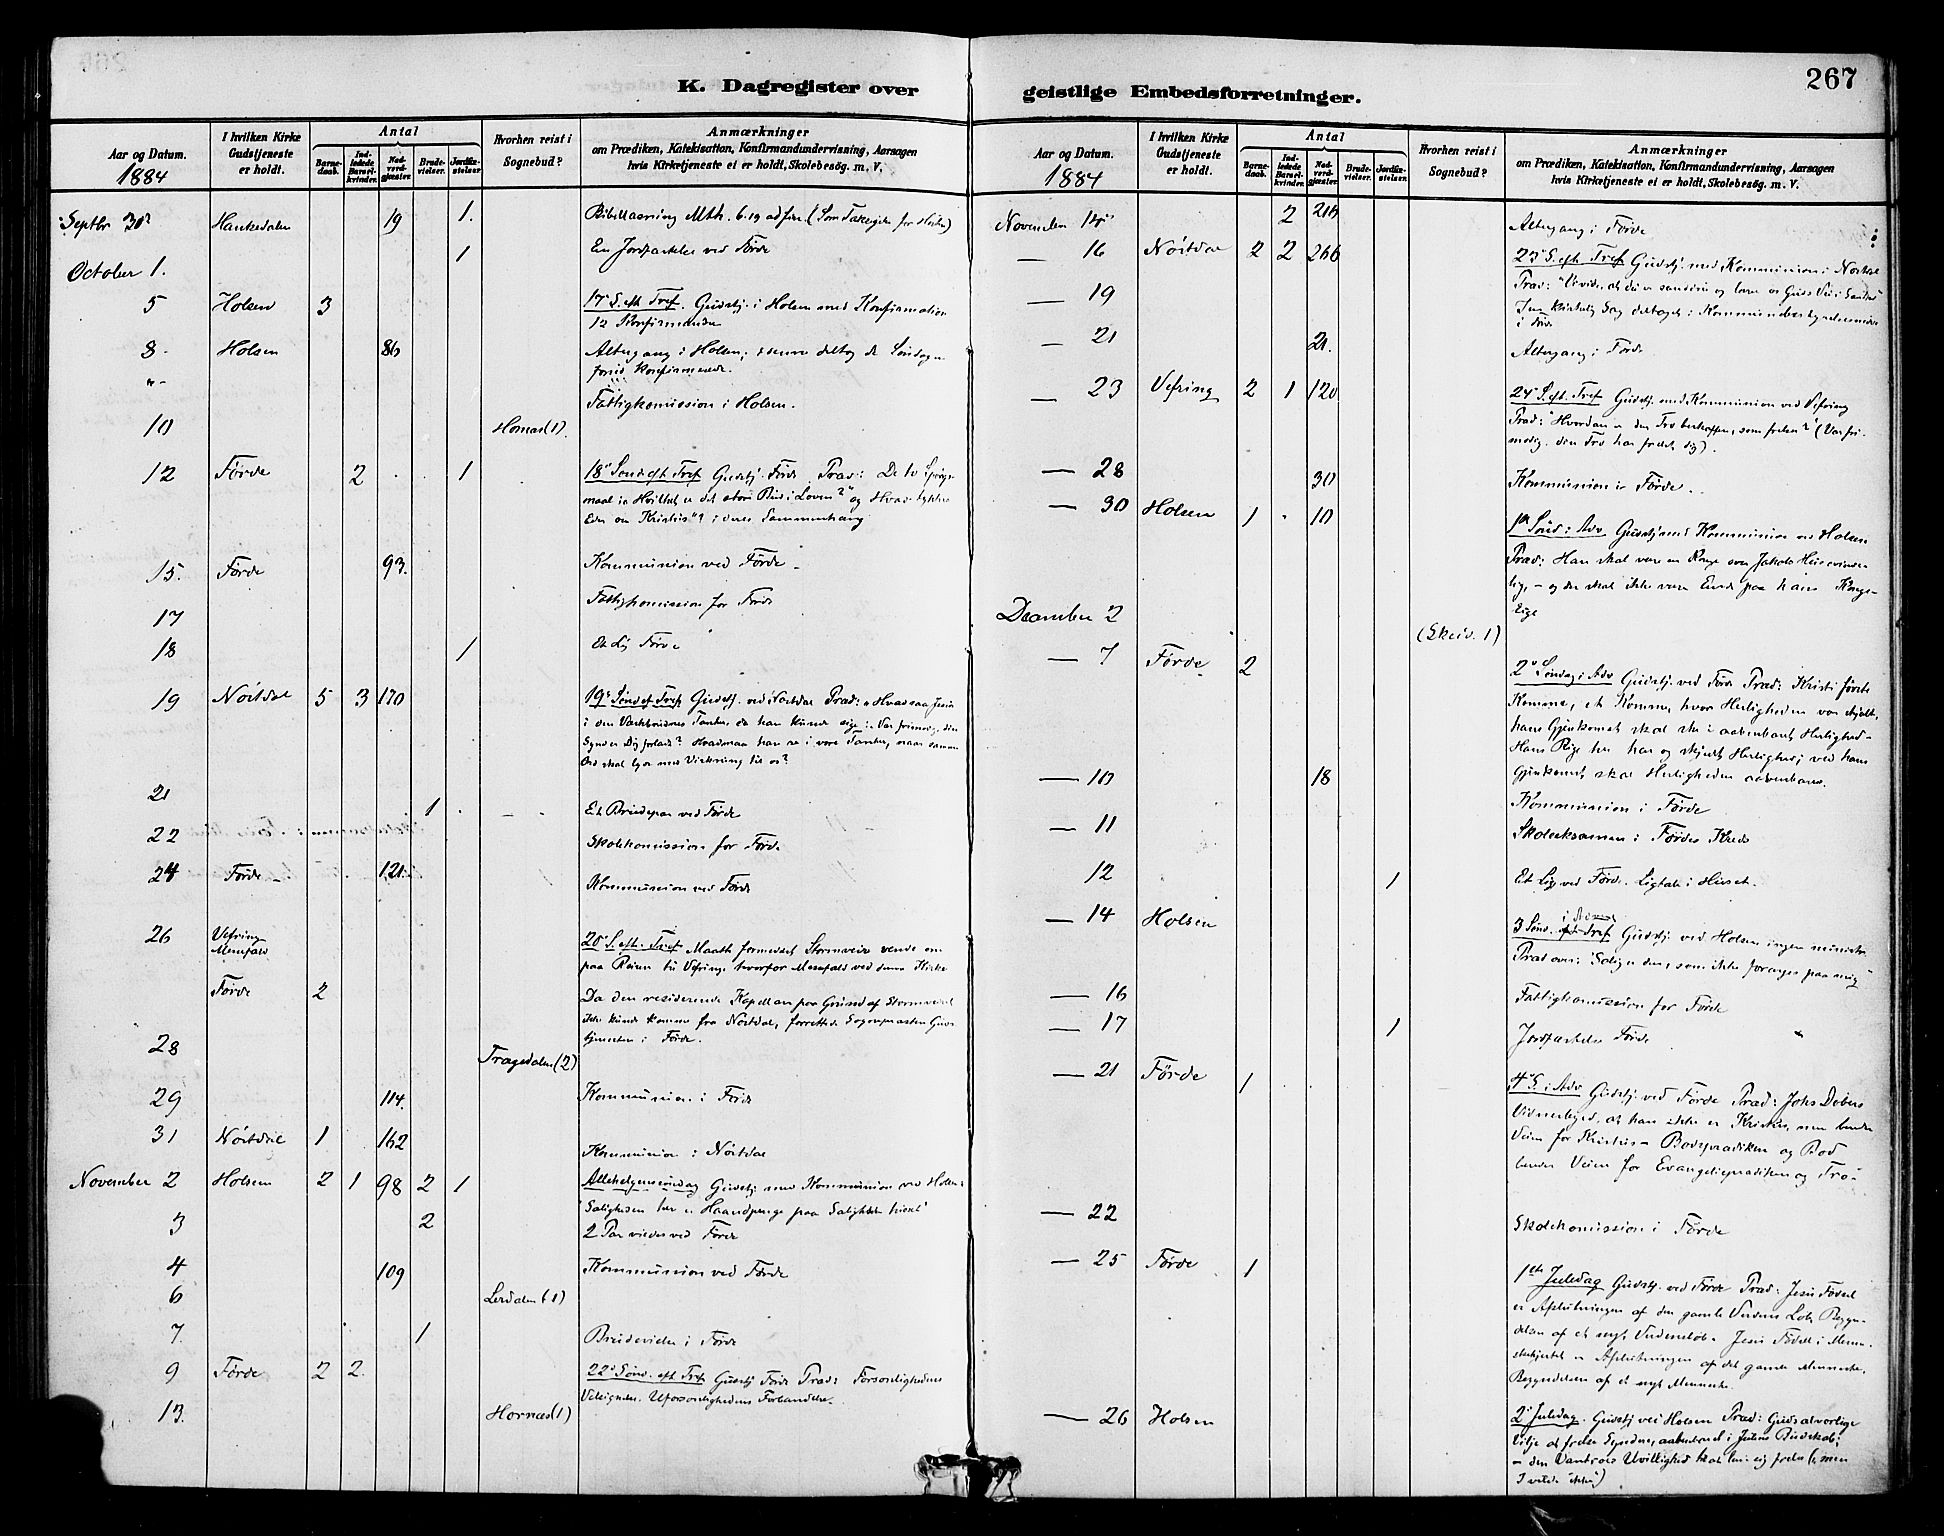 267
K. Dagregister over
Aar og Datum.
1884
I hvilken Kirke Gudstjeneste er holdt.
Antal
Barne-daab.
Ind-ledede Barsel-kvinder.
Nad-verd-gjæster.
Brude-vielser.
Jordfæ-stelser.
Hvorhen reist i Sognebud?
Anmærkninger
om Prædiken, Katekisation, Konfirmandundervisning, Aarsagen
hvis Kirketjeneste ei er holdt, Skolebesøg. m. V.
Septbr 30 19 1.
1 En Jordfæstelse ved Førde
October 1.
5 Holsen 3 17 S. eft Tref. Gudstj. i Holsen med Konfirmation
12 Konfirmander
8 Holsen 86 Altergang i Holsen; denne deltog de Søndagen
forud konfirmerede.
"- Fattigkomission i Holsen.
10 Hornæs (1).
12 Førde 2 1 18 Sønd eft Tref Gudstj. Førde Præd: De to Spørgs-
maal
Eder om Kristus"? i deres Sammenhæng
15. Førde 93. Kommunion ved Førde
17 Fattigkomission for Førde
18 1 Et Lig Førde
19 Nøstdal 5 3 170 19 Sønd eft Tref Gudstj. ved Nøstdal Præd: Hvad saa Jesus
i den Værkbrudnes Tanker, da han kunde sige: Vær frimodig, dine
Synder Dig forladt? Hvad maa han se i vore Tanker, naar samme
Ord skal lyde med Virkning til os?
21 1 Et Brudepar ved Førde
22 Skolekomission for Førde
24 Førde 121 Kommunion ved Førde
26 Vefring
Messefald 20 S. eft. Tref Maatte formedelst Stormveir vende om
paa Reisen til Vefring, hvorfor Messefald ved denne Kirke
Førde 2 Da den residerende Kapellan paa Grund af Stormveiret
ikke kunde komme fra Nøstdal, forrettede Sognepræsten Guds
tjenesten i Førde.
28 (2)
29 114. Kommunion i Førde
31 Nøstdal 1 162 Kommunion i Nøstdal
November 2 Holsen 2 1 98 2 1 Allehelgenssøndag Gudstj med Kommunion ved Holsen:
Saligheden her er Haandpenge paa Saligheden hisset
3 2 2 Par viedes ved Førde
4 109 Kommunion ved Førde
6 Lerdalen (1)
7 1 Brudevielse i Førde
9 Førde 2 2. 22 Sønd. eft Tref Gudstj Førde Præd: Forsonlighedens
Velsignelse. Uforsonlighedens Forbandelse.
13. Hornæs (1)
geistlige Embedsforretninger.
Aar og Datum.
1884
I hvilken Kirke Gudstjeneste er holdt.
Antal
Barne-daab.
Ind-ledede Barsel-kvinder.
Nad-verd-gjæster.
Brude-vielser.
Jordfæ-stelser.
Hvorhen reist i Sognebud?
Anmærkninger
om Prædiken, Katekisation, Konfirmandundervisning, Aarsagen
hvis Kirketjeneste ei er holdt, Skolebesøg. m. V.
November 2 Altergang i Førde
— 16 Nøstdal 2 2 266 23 S. eft Tref Gudstj. med Kommunion i Nøstdal
Præd: "Vi vide, at du er sanddru og lærer os Guds Vei i Sandhed"
— 19
i Førde
— 21 21. Altergang i Førde
— 23 Vefring 2 1 120 24 S. eft. Tref Gudstj. med Kommunion ved Vefring
Præd: "Hvordan er den Tro beskaffen, som frelser?" (Vær fri-
modig, din Tro har frelst dig).
— 28 30 Kommunion i Førde.
— 30 Holsen 1 10 1ste Sønd. i Adv Gudstj med Kommunion ved Holsen
Præd: Han skal være en Konge over Jakobs Huus evinde-
lig - og der skal ikke være Ende paa hans Konge-
rige
December 2 (Skei. 1)
— 7 Førde 2 2 Søndag i Adv Gudstj. ved Førde Præd: Kristi første
Komme, et Komme, hvor Herligheden var skjult,
hans Gjenkomst skal ske i aabenbaret Herlighed -
Hans Rige her har og skjult Herlighed; ved hans
Gjenkomst skal Herligheden aabenbares.
— 10 18 Kommunion i Førde
— 11 Skoleeksamen i Førdes Kreds
12 1 Et Lig ved Førde. Ligtale i Huset.
— 14 Holsen 3 Sønd. i Adv Gudstj. ved Holsen ingen
Præd over: "Salig er den, som ikke forarges paa mig"
— 16 Fattigkomission for Førde
— 17 1 Jordfæstelse Førde
— 21 Førde 1 4 S. i Adv Gudstj. ved Førde Præd: Johs Døbers
Vidnesbyrd, at han ikke er Kristus, men bereder
Veien for Kristus - Bodsprædiken og Bod
bereder Veien for Evangelieprædiken og Tro -
— 22 Skolekomission i Førde
— 25 Førde 1 1ste Juledag Gudstj. ved Førde Præd: Jesu Fødsel
er Afslutningen af den gamle Verdens Løb, Begyn-
delsen af et nyt Verdensløb. Jesu Fødsel i Menne-
skehjertet er Afslutningen af det gamle Menneske,
Begyndelsen af et nyt Menneske.
— 26 Holsen 2 Juledag. Gudstj ved Holsen Præd: Guds alvorlige
Vilje at frelse Syndere, aabenbaret i Julens Budskab;
- den Vantros Uvillighed
I vilde ikke)